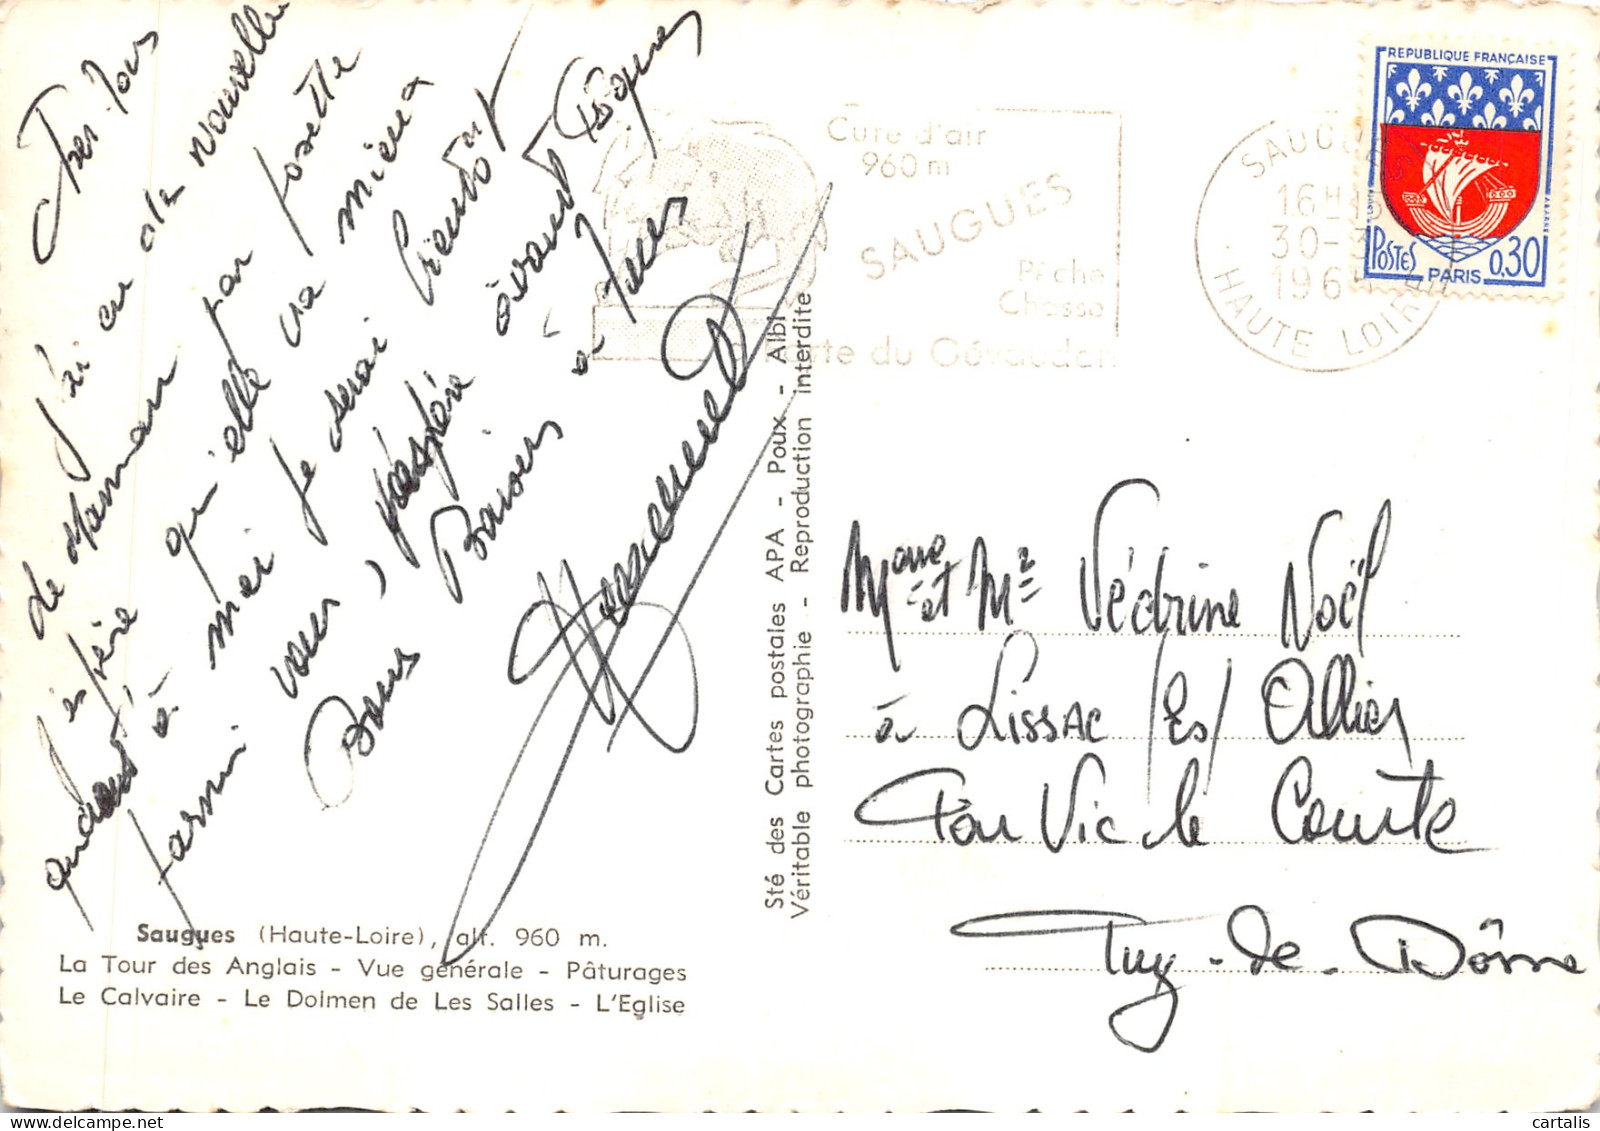 Chers Tous
J'ai eu des nouvelles
de Maman par Josette
espère qu'elle va mieux
quand à moi je serai bientôt
parmi vous, j'espère avant Pâques
Bons Baisers à Tous
Saugues (Haute-Loire), alt. 960 m.
La Tour des Anglais - Vue générale - Pâturages
Le Calvaire - Le Dolmen de Les Salles - L'Eglise
Sté des Cartes postales APA - Poux - Albi
Véritable photographie - Reproduction interdite
Cure d'air
960 m
SAUGUES
Pêche
Chasse
Porte du Gévaudan
SAUGUES
16H
30-3
196
HAUTE LOIRE
REPUBLIQUE FRANÇAISE
POSTES
PARIS
0,30
Mme et Mr Védrine Noël
à Lissac /Es/ Allier
Par Vic le Comte
Puy-de-Dôme
cartalis
delcampe.net